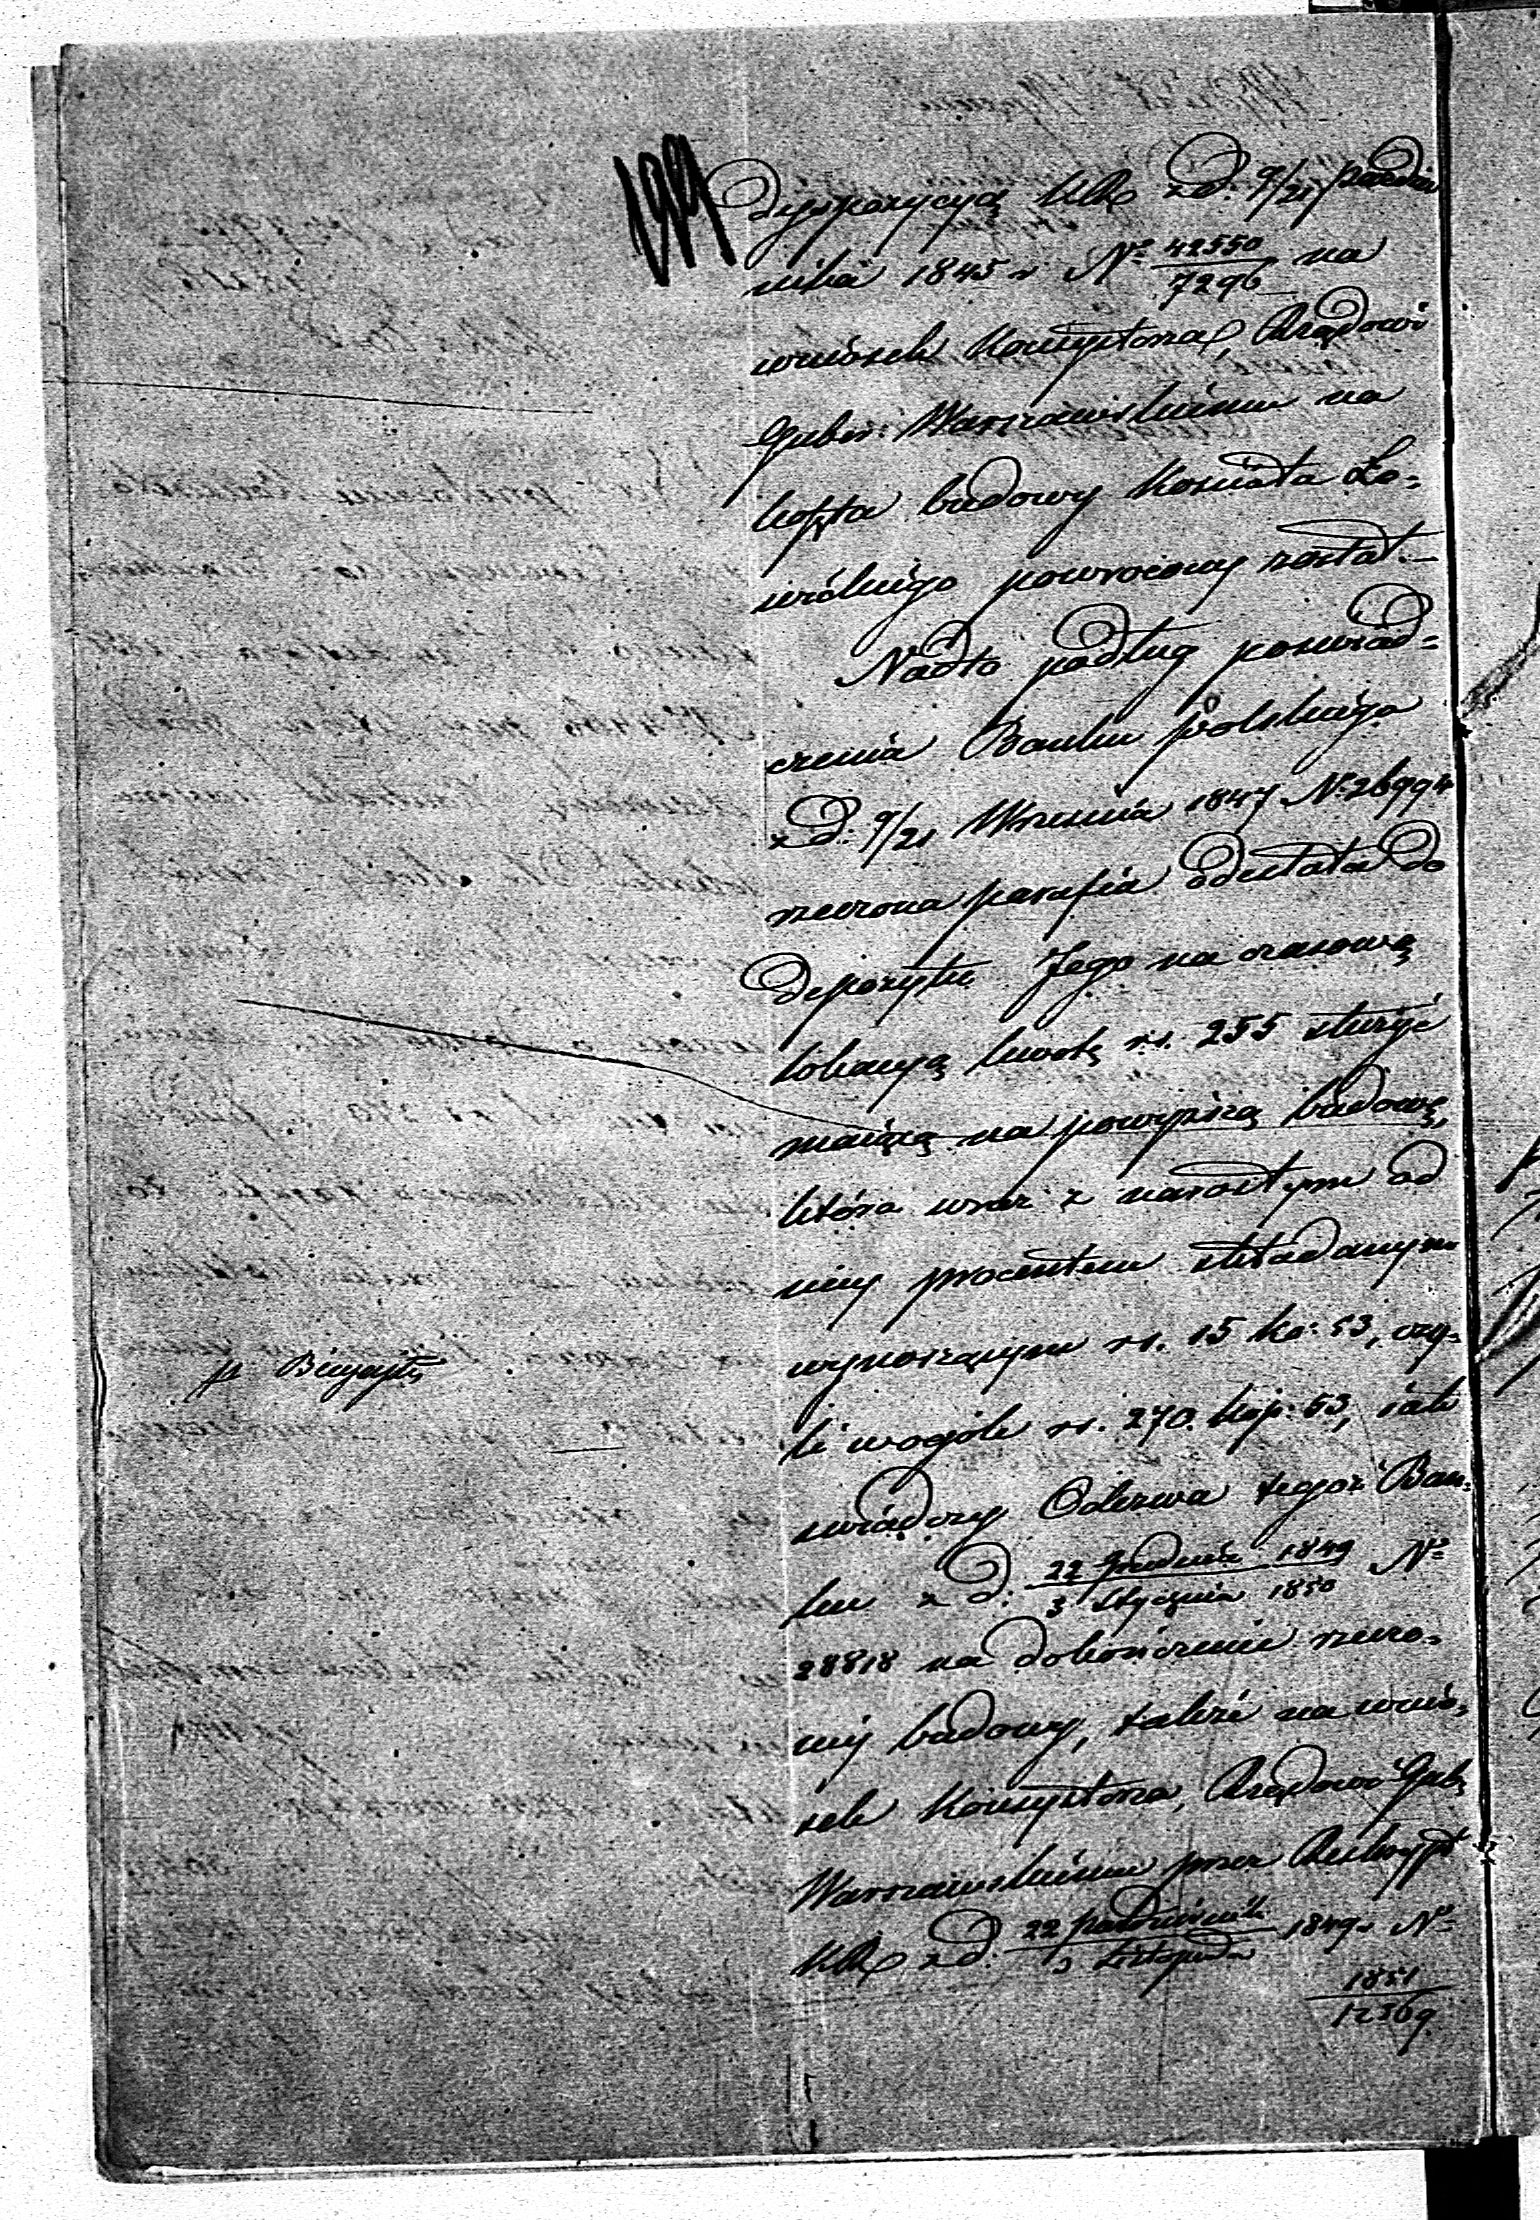 dyspozycyą KR z d: 9/21 paździer
nika 1845 r N° 42550/7296 na
wniosek Konsystorza, Rządowi
Guber: Warszawskiemu na
koszta budowy Kościoła Ło-
wickiego powrócony został. –
Nadto podług poświad-
czenia Banku Polskiego
z d: 9/21 Września 1847 N° 26994
rzeczona parafia odesłała do
depozytu Jego na czasową
lokacyą kwotę rs. 255 służyć
maiącą na powyższą budowę,
która wraz z narosłym od
niej procentem składanym
wynoszącym rs. 15 ko: 53, czy-
li wogóle rs. 270. kop: 53, iak
świadczy Odezwa tegoż Ban-
ku z d. 22 Grudnia 1849/3 Stycznia 1850 N°
28818 na dokończenie rzeczo-
nej budowy, także na wnio-
sek Konsystorza, Rządowi Gub:
Warszawskiemu przez Reskrypt
KR z d. 22 Października/3 Listopada 1849 r N°
1851/12569